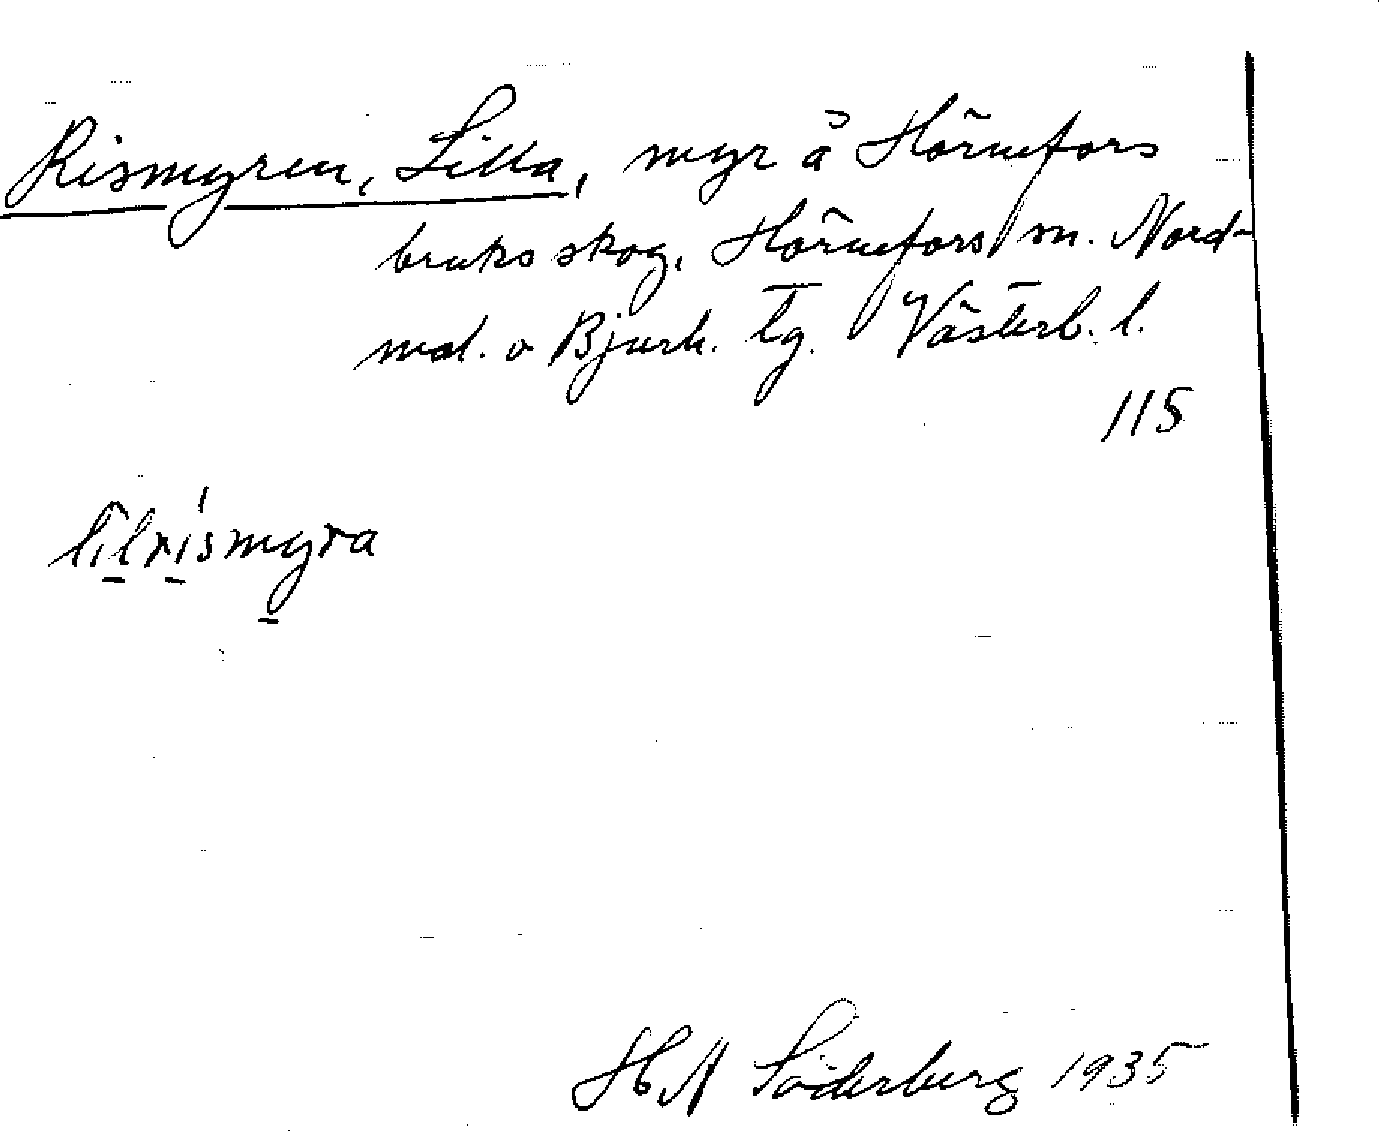 Rismyren, Lilla, myr å Hörnefors
bruks skog, Hörnefors sn. Nord-
mal. o Bjurh. tg. Västerb. l.
115
lilrismyra
H A Söderberg 1935